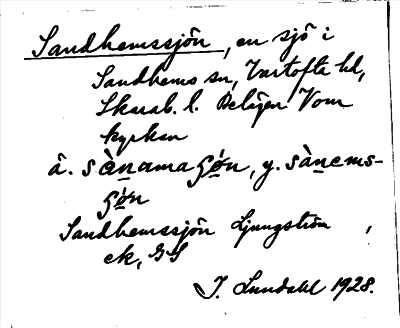 Sandhemssjön, en sjö i
Sandhems sn, Vartofta hd,
Skarab. l. Belägen V om
kyrkan
ä. sànama ʃǿn, y. sànems-
ʃǿn
Sandhemssjön Ljungström,
ek, GS
I. Lundahl 1928.